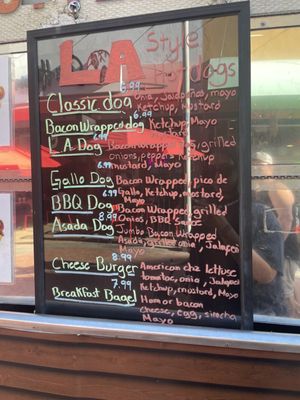 LA Style
Hot dogs
6.99
Classic dog Onia, Jalapeños, mayo
Ketchup, Mustard
6.99
Bacon Wrapped dog Ketchup, Mayo
6.99
L.A. Dog Bacon Wrapped, grilled
Onions, peppers, Ketchup
mustard, Mayo
Gallo Dog Bacon Wrapped, pico de
6.99 Gallo, Ketchup, mostard,
Mayo
BBQ Dog Bacon Wrapped, grilled
8.99 Onios, BBQ Sauce
Asada Dog Jumbo Bacon Wrapped
Asada, grilled onia, Jalapeño
Mayo
8.99
Cheese Burger American che lettuse
tomatoe, onia, Jalapeño
7.99 Ketchup, mustard, Mayo
Breakfast Bagel Ham or bacon
Cheese, egg, siracha,
Mayo